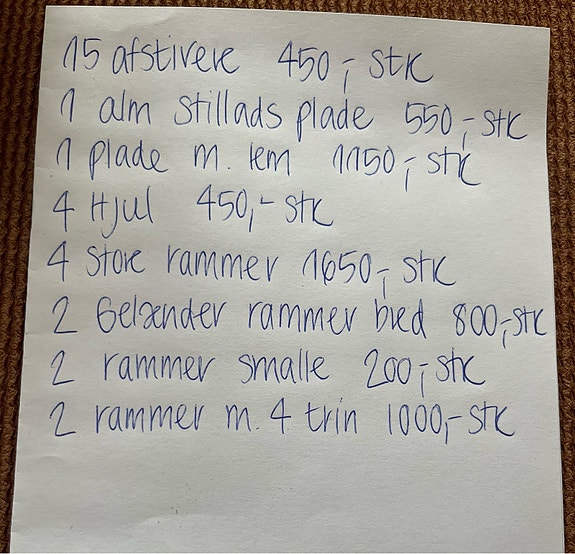 15 afstivere 450,- stk
1 alm stillads plade 550,- stk
1 plade m. lem 1150,- stk
4 Hjul 450,- stk
4 store rammer 1650,- stk
2 Gelænder rammer bred 800,- stk
2 rammer smalle 200,- stk
2 rammer m. 4 trin 1000,- stk